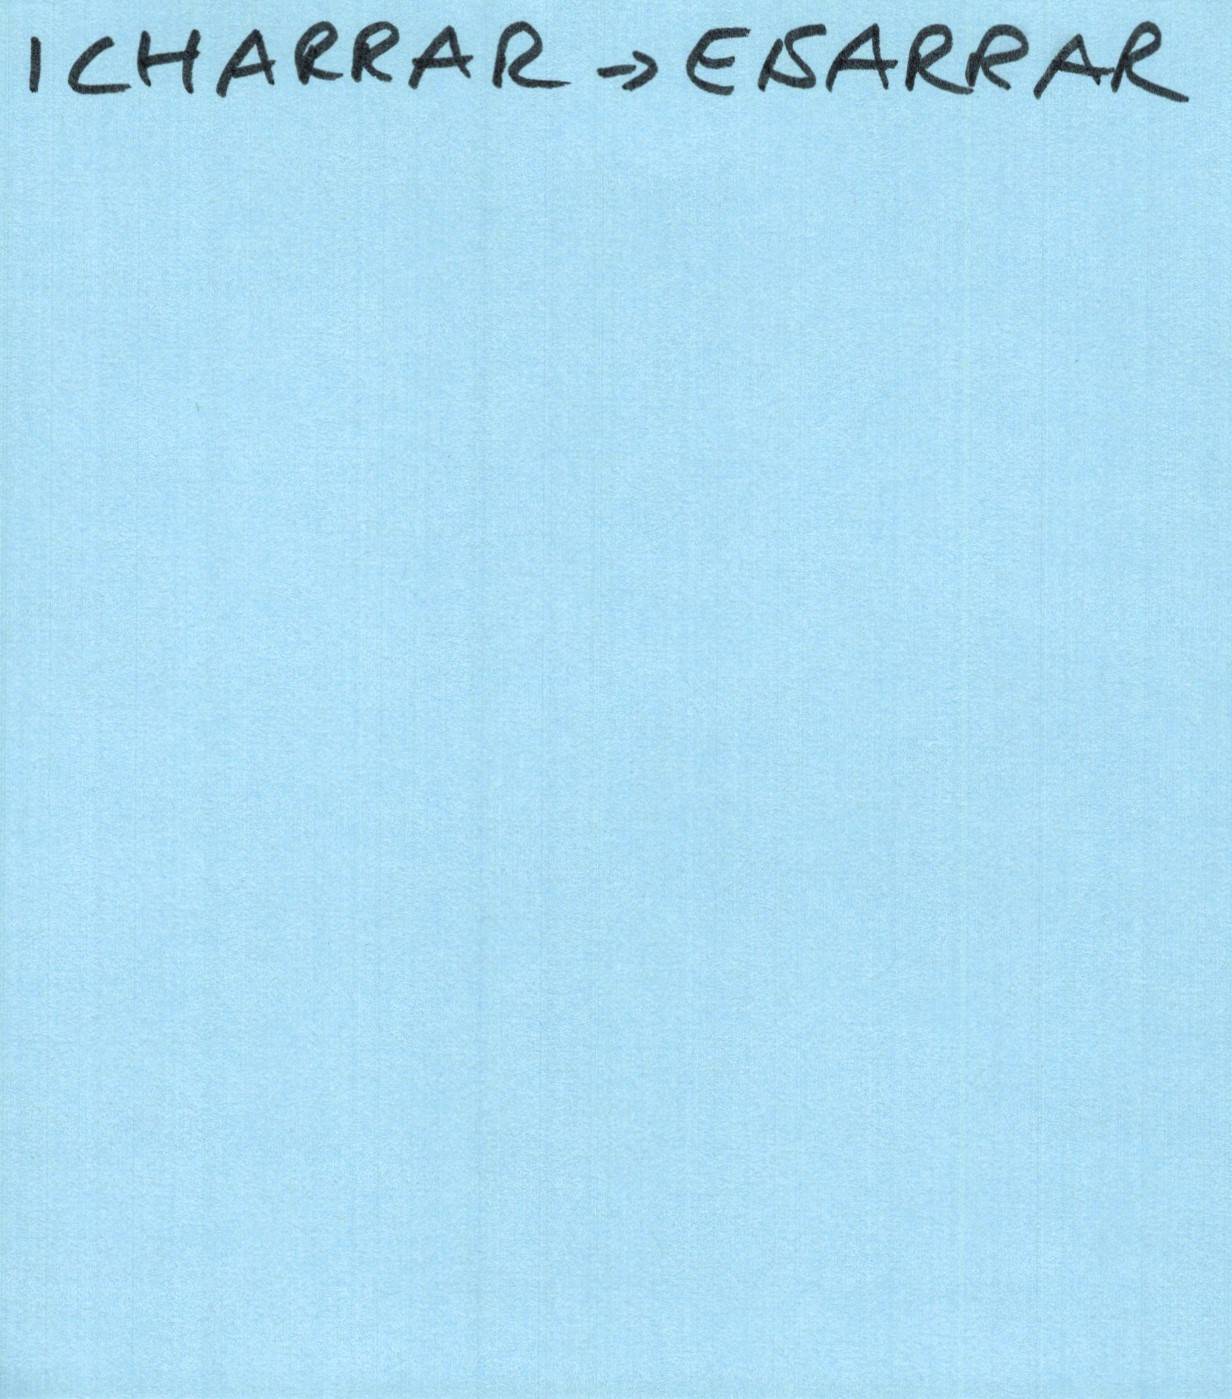 ICHARRAR → EISARRAR